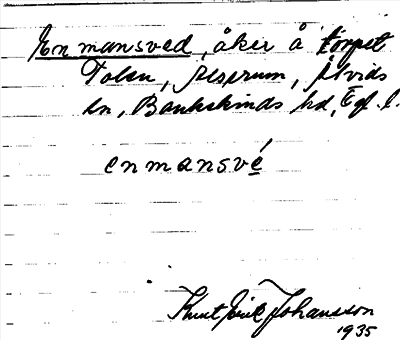 Enmansved, åker å torpet
Tolen, Risprum, Åtvids
sn, Bankekinds hd, Ög. l.
enmansvé
Knut Erik Johansson
1935